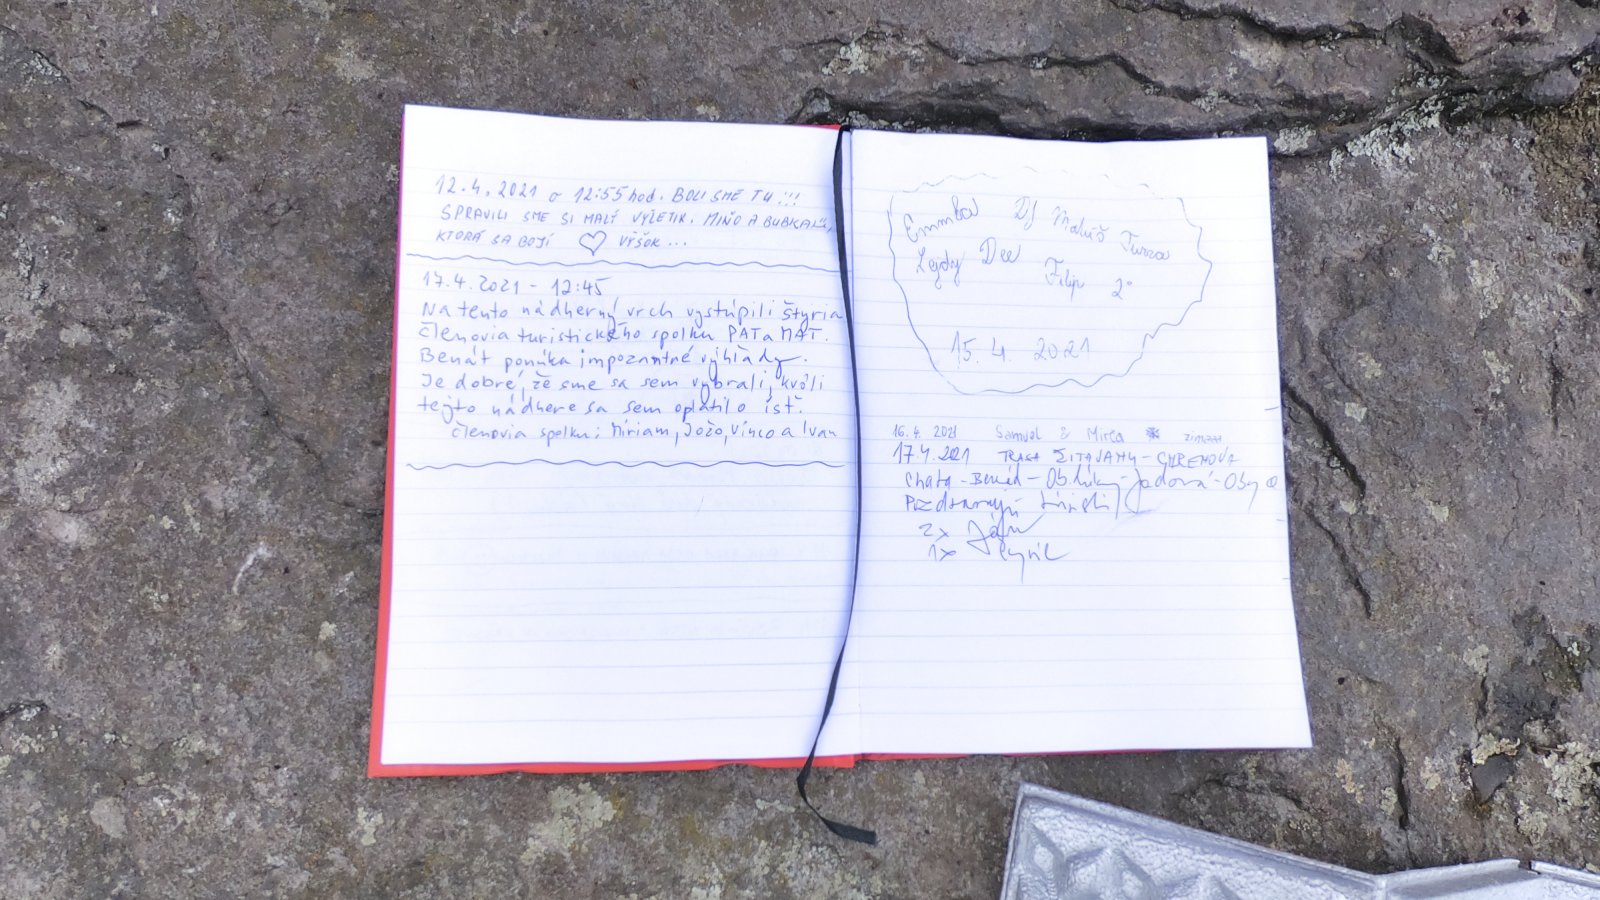 12.4.2021 o 12:55 hod. BOLI SME TU!!!
SPRAVILI SME SI MALÝ VÝLETIK. MIŇO A
KTORÁ SA BOJÍ VÝŠOK...
17.4.2021 - 12:45
Na tento nádherný vrch vystúpili štyria
členovia turistického spolku PAT a MAT.
Benát ponúka impozantné výhľady.
Je dobré, že sme sa sem vybrali, kvôli
tejto nádhere sa sem oplatilo ísť.
Členovia spolku: Miriam, Jožo, Vinco a Ivan
Emmba DJ Matúš Turza
Lejdy Dee Filip 2°
15.4. 2021
16.4. 2021 Samuel & Mirča zimaaa
17.4.2021 TRASA
Chata - - Jadová - Oby
Pozdravujú
2x Ján
1x Cyril